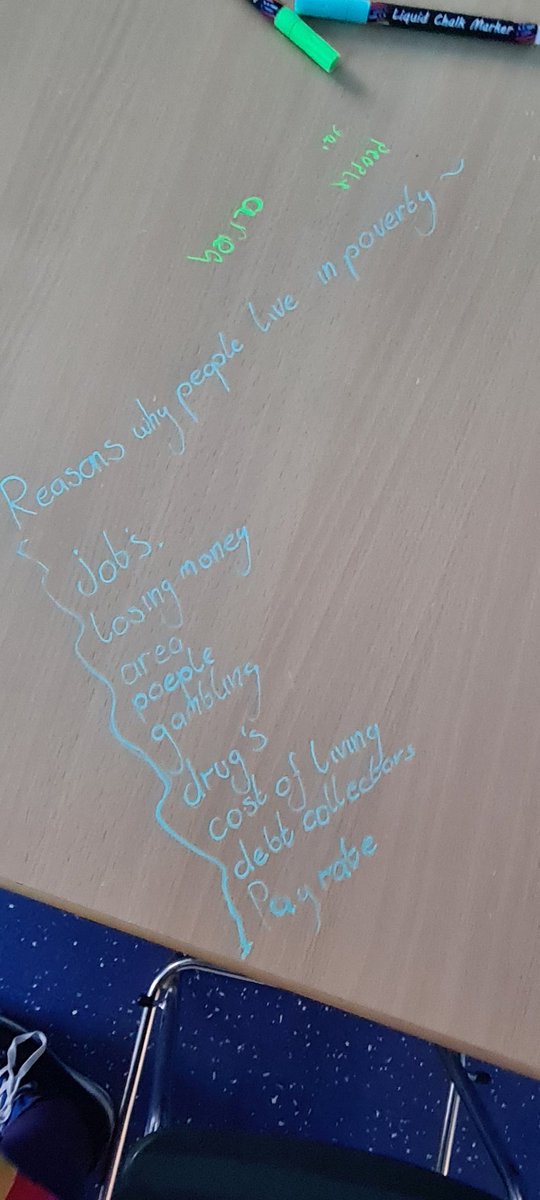 Liquid Chalk Marker
people
area
Reasons why people live in poverty ~
Job's.
losing money
area
poeple
gambling
drug's
cost of living
debt collectors
Pay rate